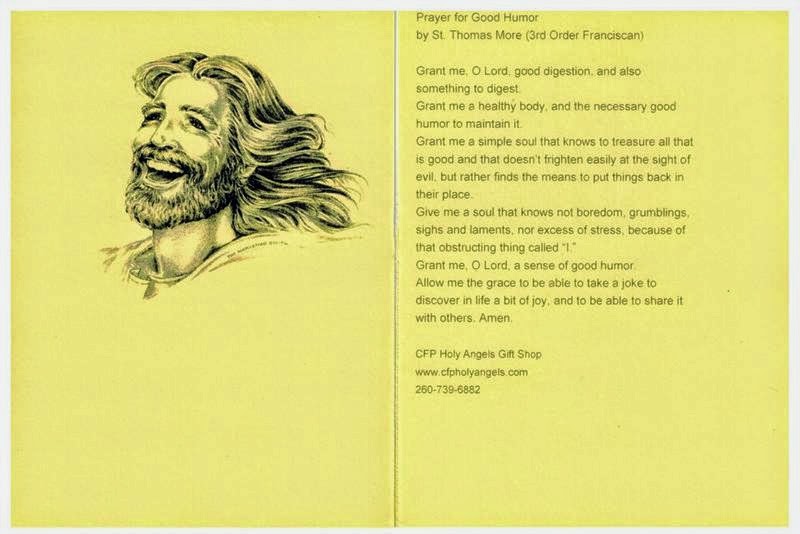 Prayer for Good Humor
by St. Thomas More (3rd Order Franciscan)
Grant me, O Lord, good digestion, and also
something to digest.
Grant me a healthy body, and the necessary good
humor to maintain it.
Grant me a simple soul that knows to treasure all that
is good and that doesn't frighten easily at the sight of
evil, but rather finds the means to put things back in
their place.
Give me a soul that knows not boredom, grumblings,
sighs and laments, nor excess of stress, because of
that obstructing thing called "I."
Grant me, O Lord, a sense of good humor.
Allow me the grace to be able to take a joke to
discover in life a bit of joy, and to be able to share it
with others. Amen.
CFP Holy Angels Gift Shop
www.cfpholyangels.com
260-739-6882